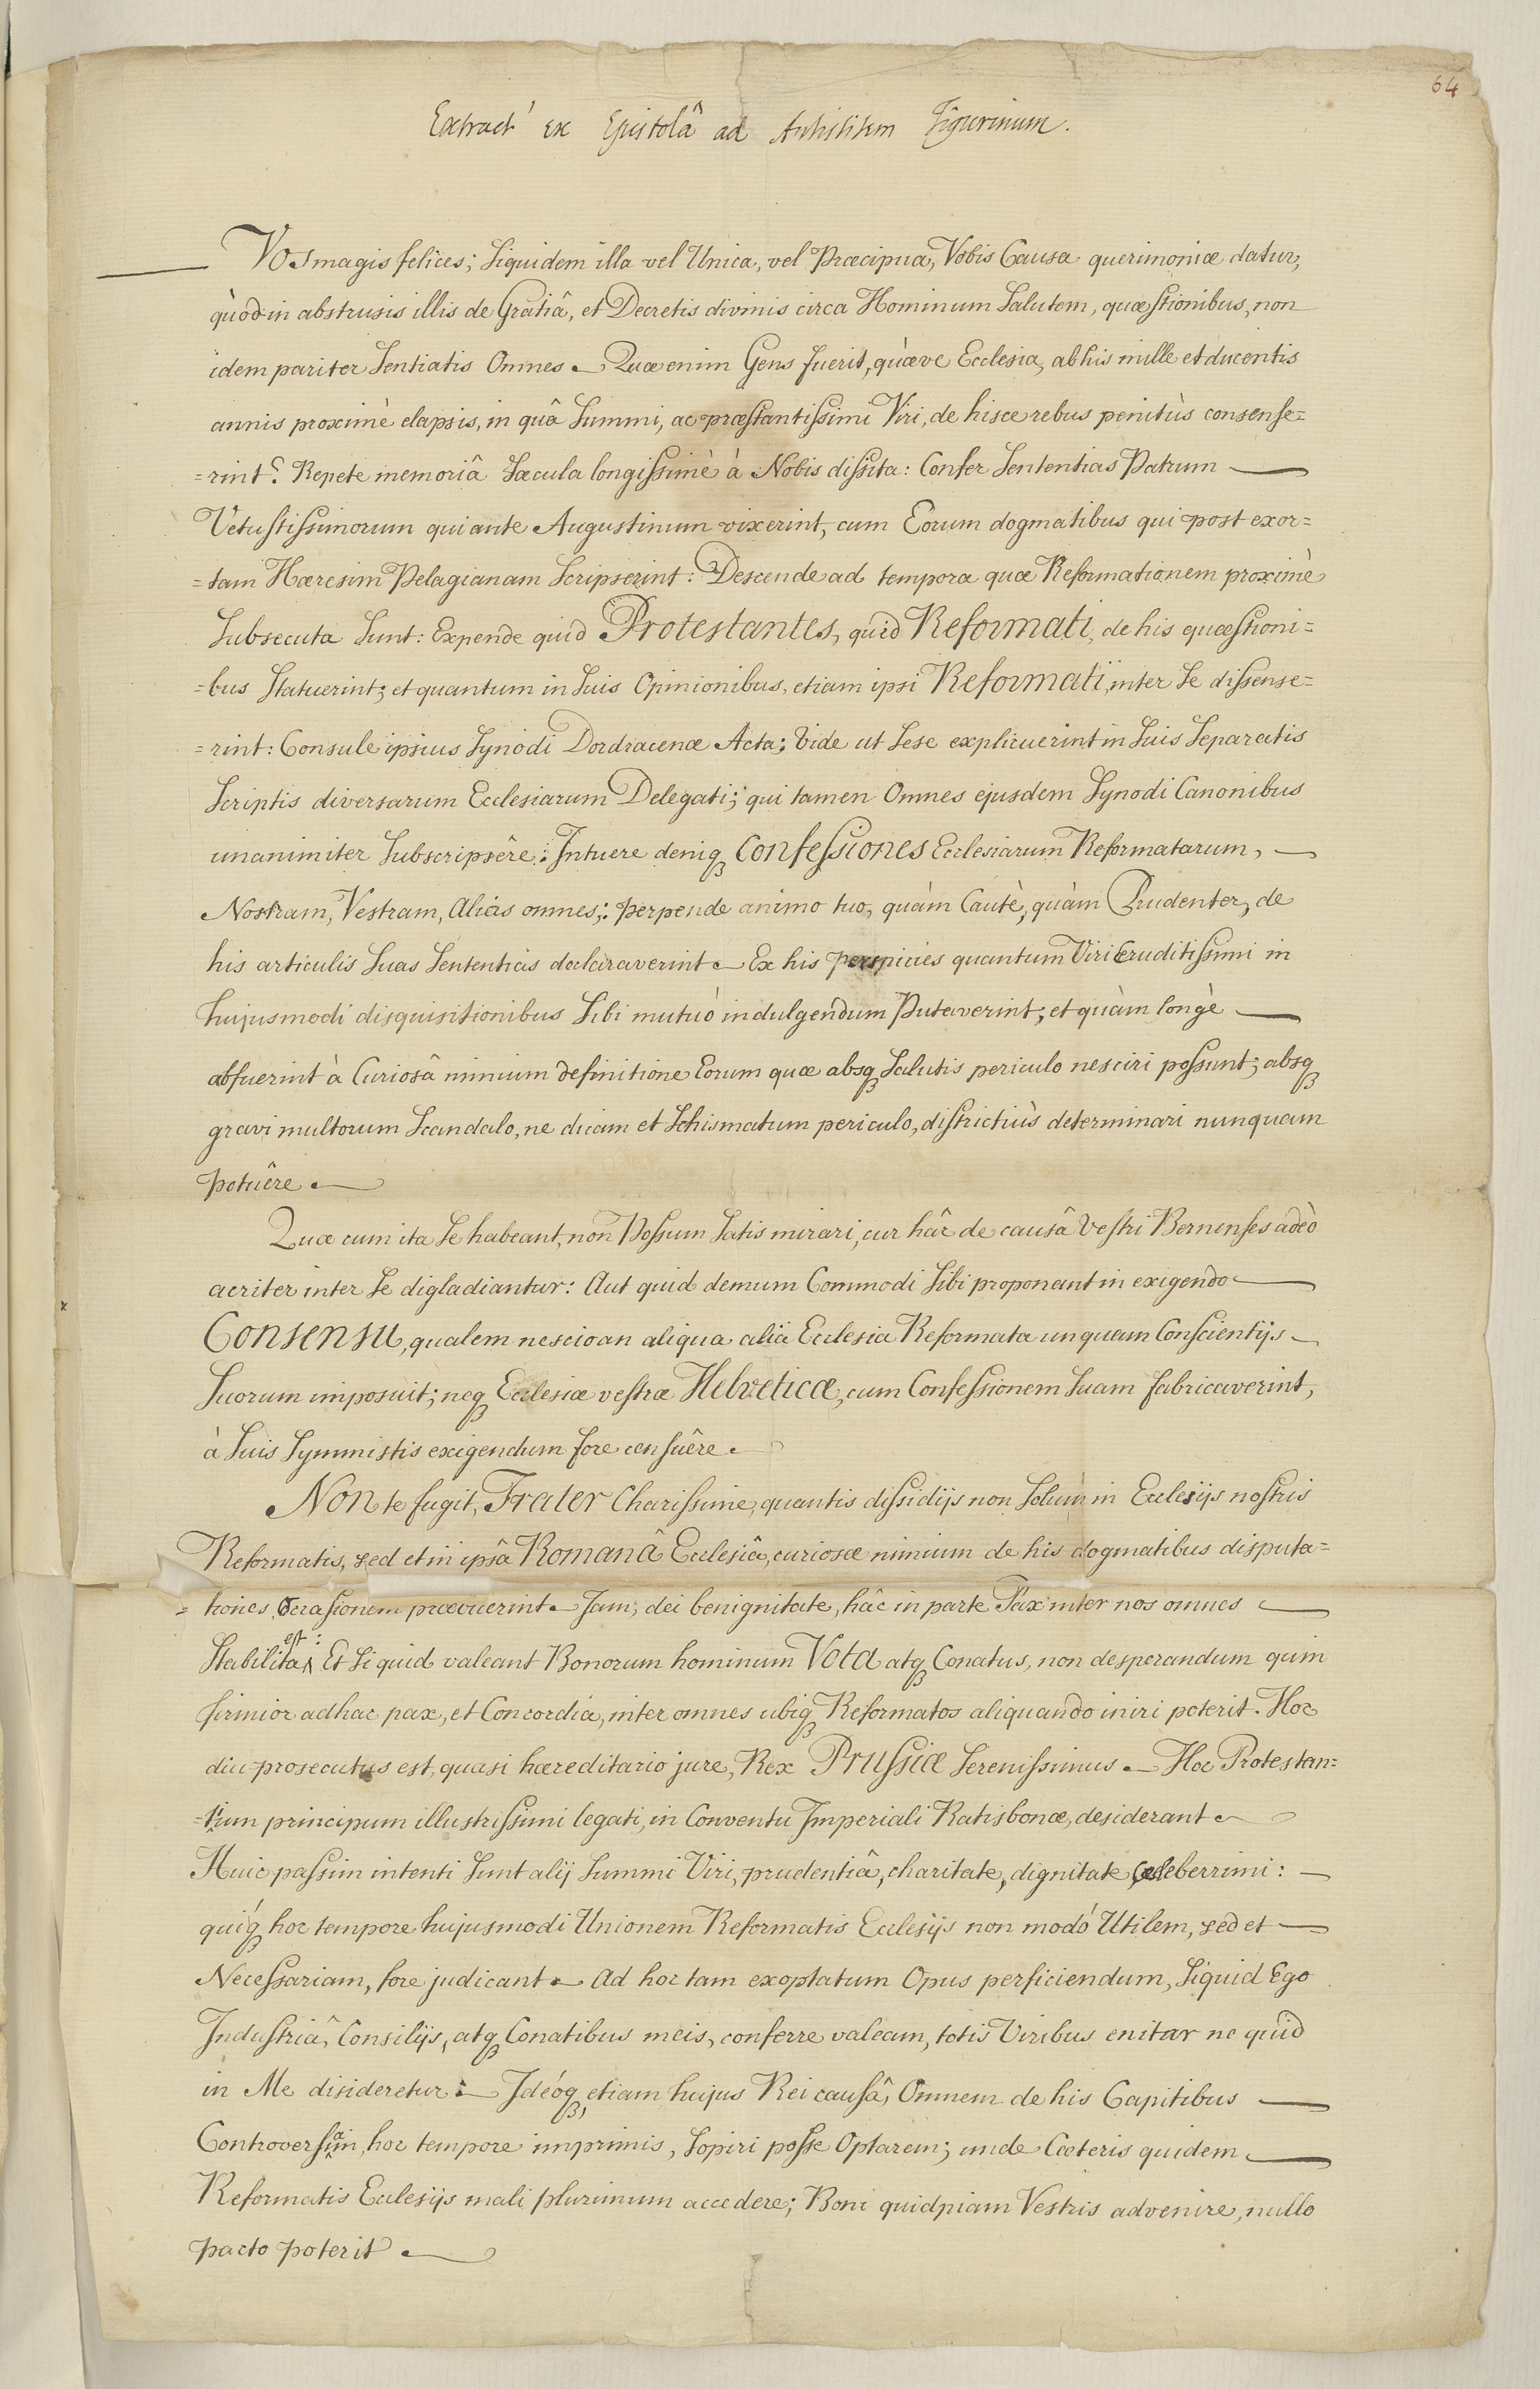 64
Extract' ex Epistolâ ad Antistitem Tigurinum.
Vos magis felices; siquidem illa vel Unica, vel Præcipua, Vobis Causa querimoniæ datur,
quòd in abstrusis illis de Gratiâ, et Decretis divinis circa Hominum Salutem, quæstionibus, non
idem pariter Sentiatis Omnes. Quæ enim Gens fuerit, quæve Ecclesia, ab his mille et ducentis
annis proximè elapsis, in quâ Summi, ac præstantissimi Viri, de hisce rebus penitùs consense=
=rint? Repete memoriâ Sæcula longissimè à Nobis dissita: Confer Sententias Patrum
Vetustissimorum qui ante Augustinum vixerint, cum Eorum dogmatibus qui post exor=
=tam Hæresim Pelagianam Scripserint: Descende ad tempora quæ Reformationem proximè
Subsecuta Sunt: Expende quid Protestantes, quid Reformati, de his quæstioni=
=bus Statuerint; et quantum in Suis Opinionibus, etiam ipsi Reformati, inter Se dissense=
=rint: Consule ipsius Synodi Dordracenæ Acta; Vide ut Sese explicuerint in Suis Separatis
Scriptis diversarum Ecclesiarum Delegati; qui tamen Omnes ejusdem Synodi Canonibus
unanimiter Subscripsêre: Intuere deniq Confessiones Ecclesiarum Reformatarum,
Nostram, Vestram, Alias omnes; perpende animo tuo, quàm Cautè, quàm Prudenter, de
his articulis Suas Sententias declaraverint. Ex his perspicies quantum Viri Eruditissimi in
hujusmodi disquisitionibus Sibi mutuò indulgendum Putaverint; et quàm longè
abfuerint à Curiosâ nimium definitione Eorum quæ absq Salutis periculo nesciri possunt; absq
gravi multorum Scandalo, ne dicam et Schismatum periculo, districtiùs determinari nunquam
potuêre.
Quæ cum ita Se habeant, non Possum Satis mirari, cur hâc de causâ Vestri Bernenses adeò
acriter inter Se digladiantur: Aut quid demum Commodi Sibi proponant in exigendo
Consensu, qualem nescio an aliqua alia Ecclesia Reformata unquam Conscientijs
Suorum imposuit; neq Ecclesiæ vestræ Helveticæ, cum Confessionem Suam fabricaverint,
à Suis Symmistis exigendum fore censuêre.
Non te fugit, Frater Charissime, quantis dissidijs non Solùm in Ecclesijs nostris
Reformatis, sed et in ipsâ Romanâ Ecclesiâ, curiosæ nimium de his dogmatibus disputa=
=tiones Occasionem præbuerint. Jam, dei benignitate, hâc in parte Pax inter nos omnes
Stabilita est: Et Si quid valeant Bonorum hominum Vota atq Conatus, non desperandum quin
firmior adhuc pax, et Concordia, inter omnes ubiq Reformatos aliquando iniri poterit. Hoc
diu prosecutus est, quasi hæreditario jure, Rex Prussiæ Serenissimus. Hoc Protestan=
=tium principum illustrissimi legati, in Conventu Imperiali Ratisbonæ, desiderant.
Huic passim intenti Sunt alij Summi Viri, prudentiâ, charitate, dignitate celeberrimi:
quiq hoc tempore hujusmodi Unionem Reformatis Ecclesijs non modó Utilem, sed et
Necessariam, fore judicant. Ad hoc tam exoptatum Opus perficiendum, Siquid Ego
Industriâ, Consilijs, atq Conatibus meis, conferre valeam, totis Viribus enitar ne quid
in Me disideretur: Ideóq, etiam hujus Rei causâ, Omnem de his Capitibus
Controversiam, hoc tempore imprimis, Sopiri posse Optarem; unde Cæteris quidem
Reformatis Ecclesijs mali plurimum accedere; Boni quidpiam Vestris advenire, nullo
pacto poterit.